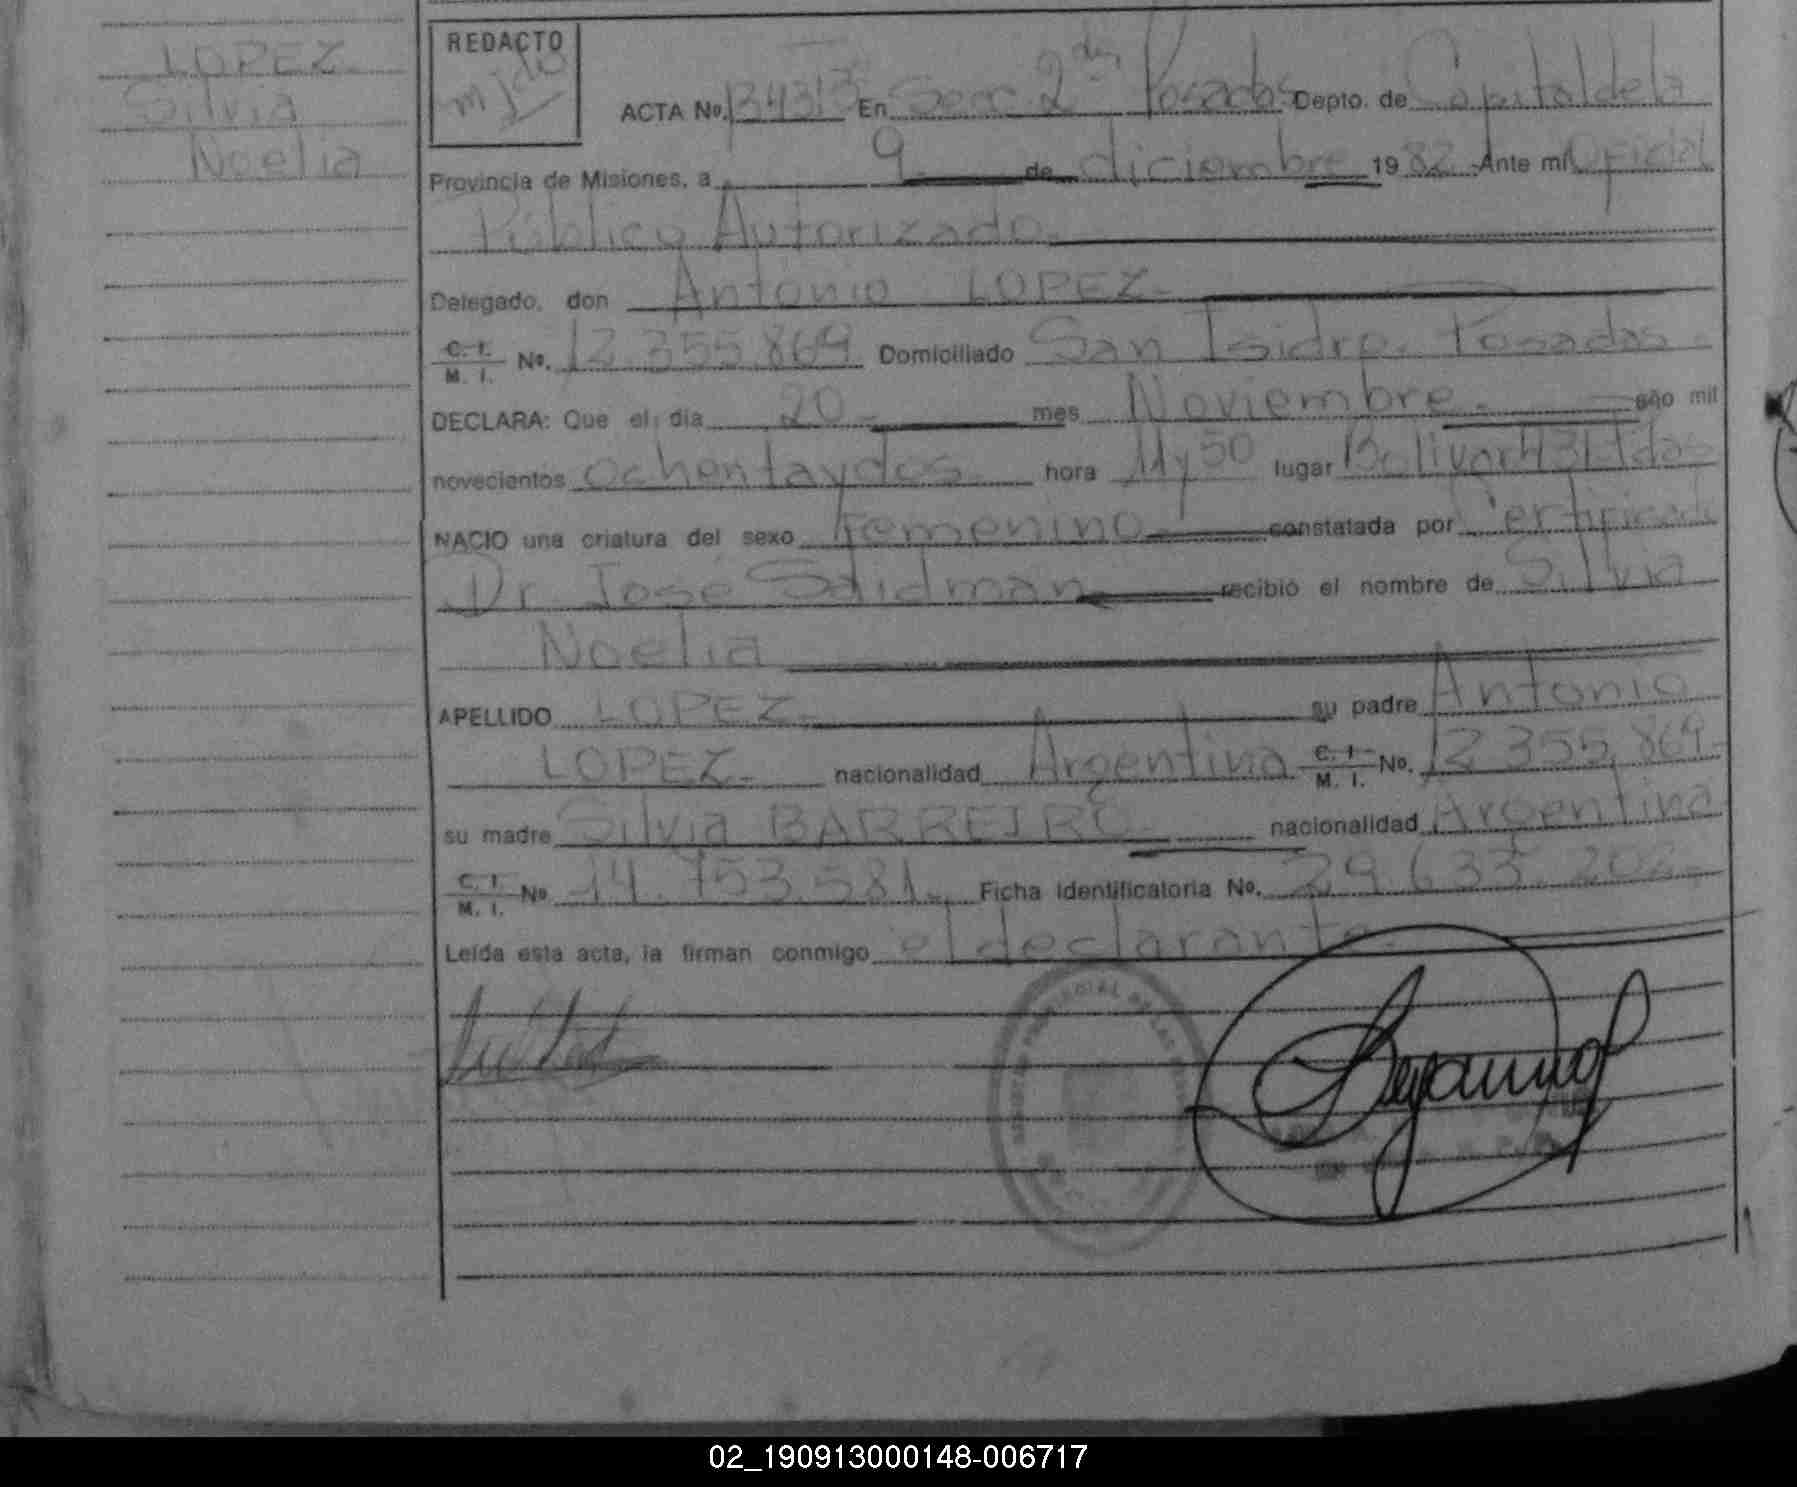 LOPEZ
Silvia
Noelia
REDACTO
ACTA No. 13431 En Secc. 2da Posadas Depto. de Capital de la
Provincia de Misiones, a 9 de diciembre 1982 Ante mi Oficial
Público Autorizado.
Delegado, don Antonio LOPEZ-
C. I. M. I. No. 12.355.869 Domiciliado San Isidro. Posadas.
DECLARA: Que el dia 20- mes Noviembre- año mil
novecientos ochentaydos- hora 11y50 lugar Bolivar 431 Pdas
NACIO una criatura del sexo Femenino- constatada por Certificado
Dr. José Saidman recibió el nombre de Silvia
Noelia
APELLIDO LOPEZ- su padre Antonio
LOPEZ- nacionalidad Argentina C. I. M. I. No. 12.355.869-
su madre Silvia BARREIRO- nacionalidad Argentina
C. I. M. I. No 14.753.581- Ficha identificatoria No. 29.633.202-
Leída esta acta, la firman conmigo el declarante.
02_190913000148-006717